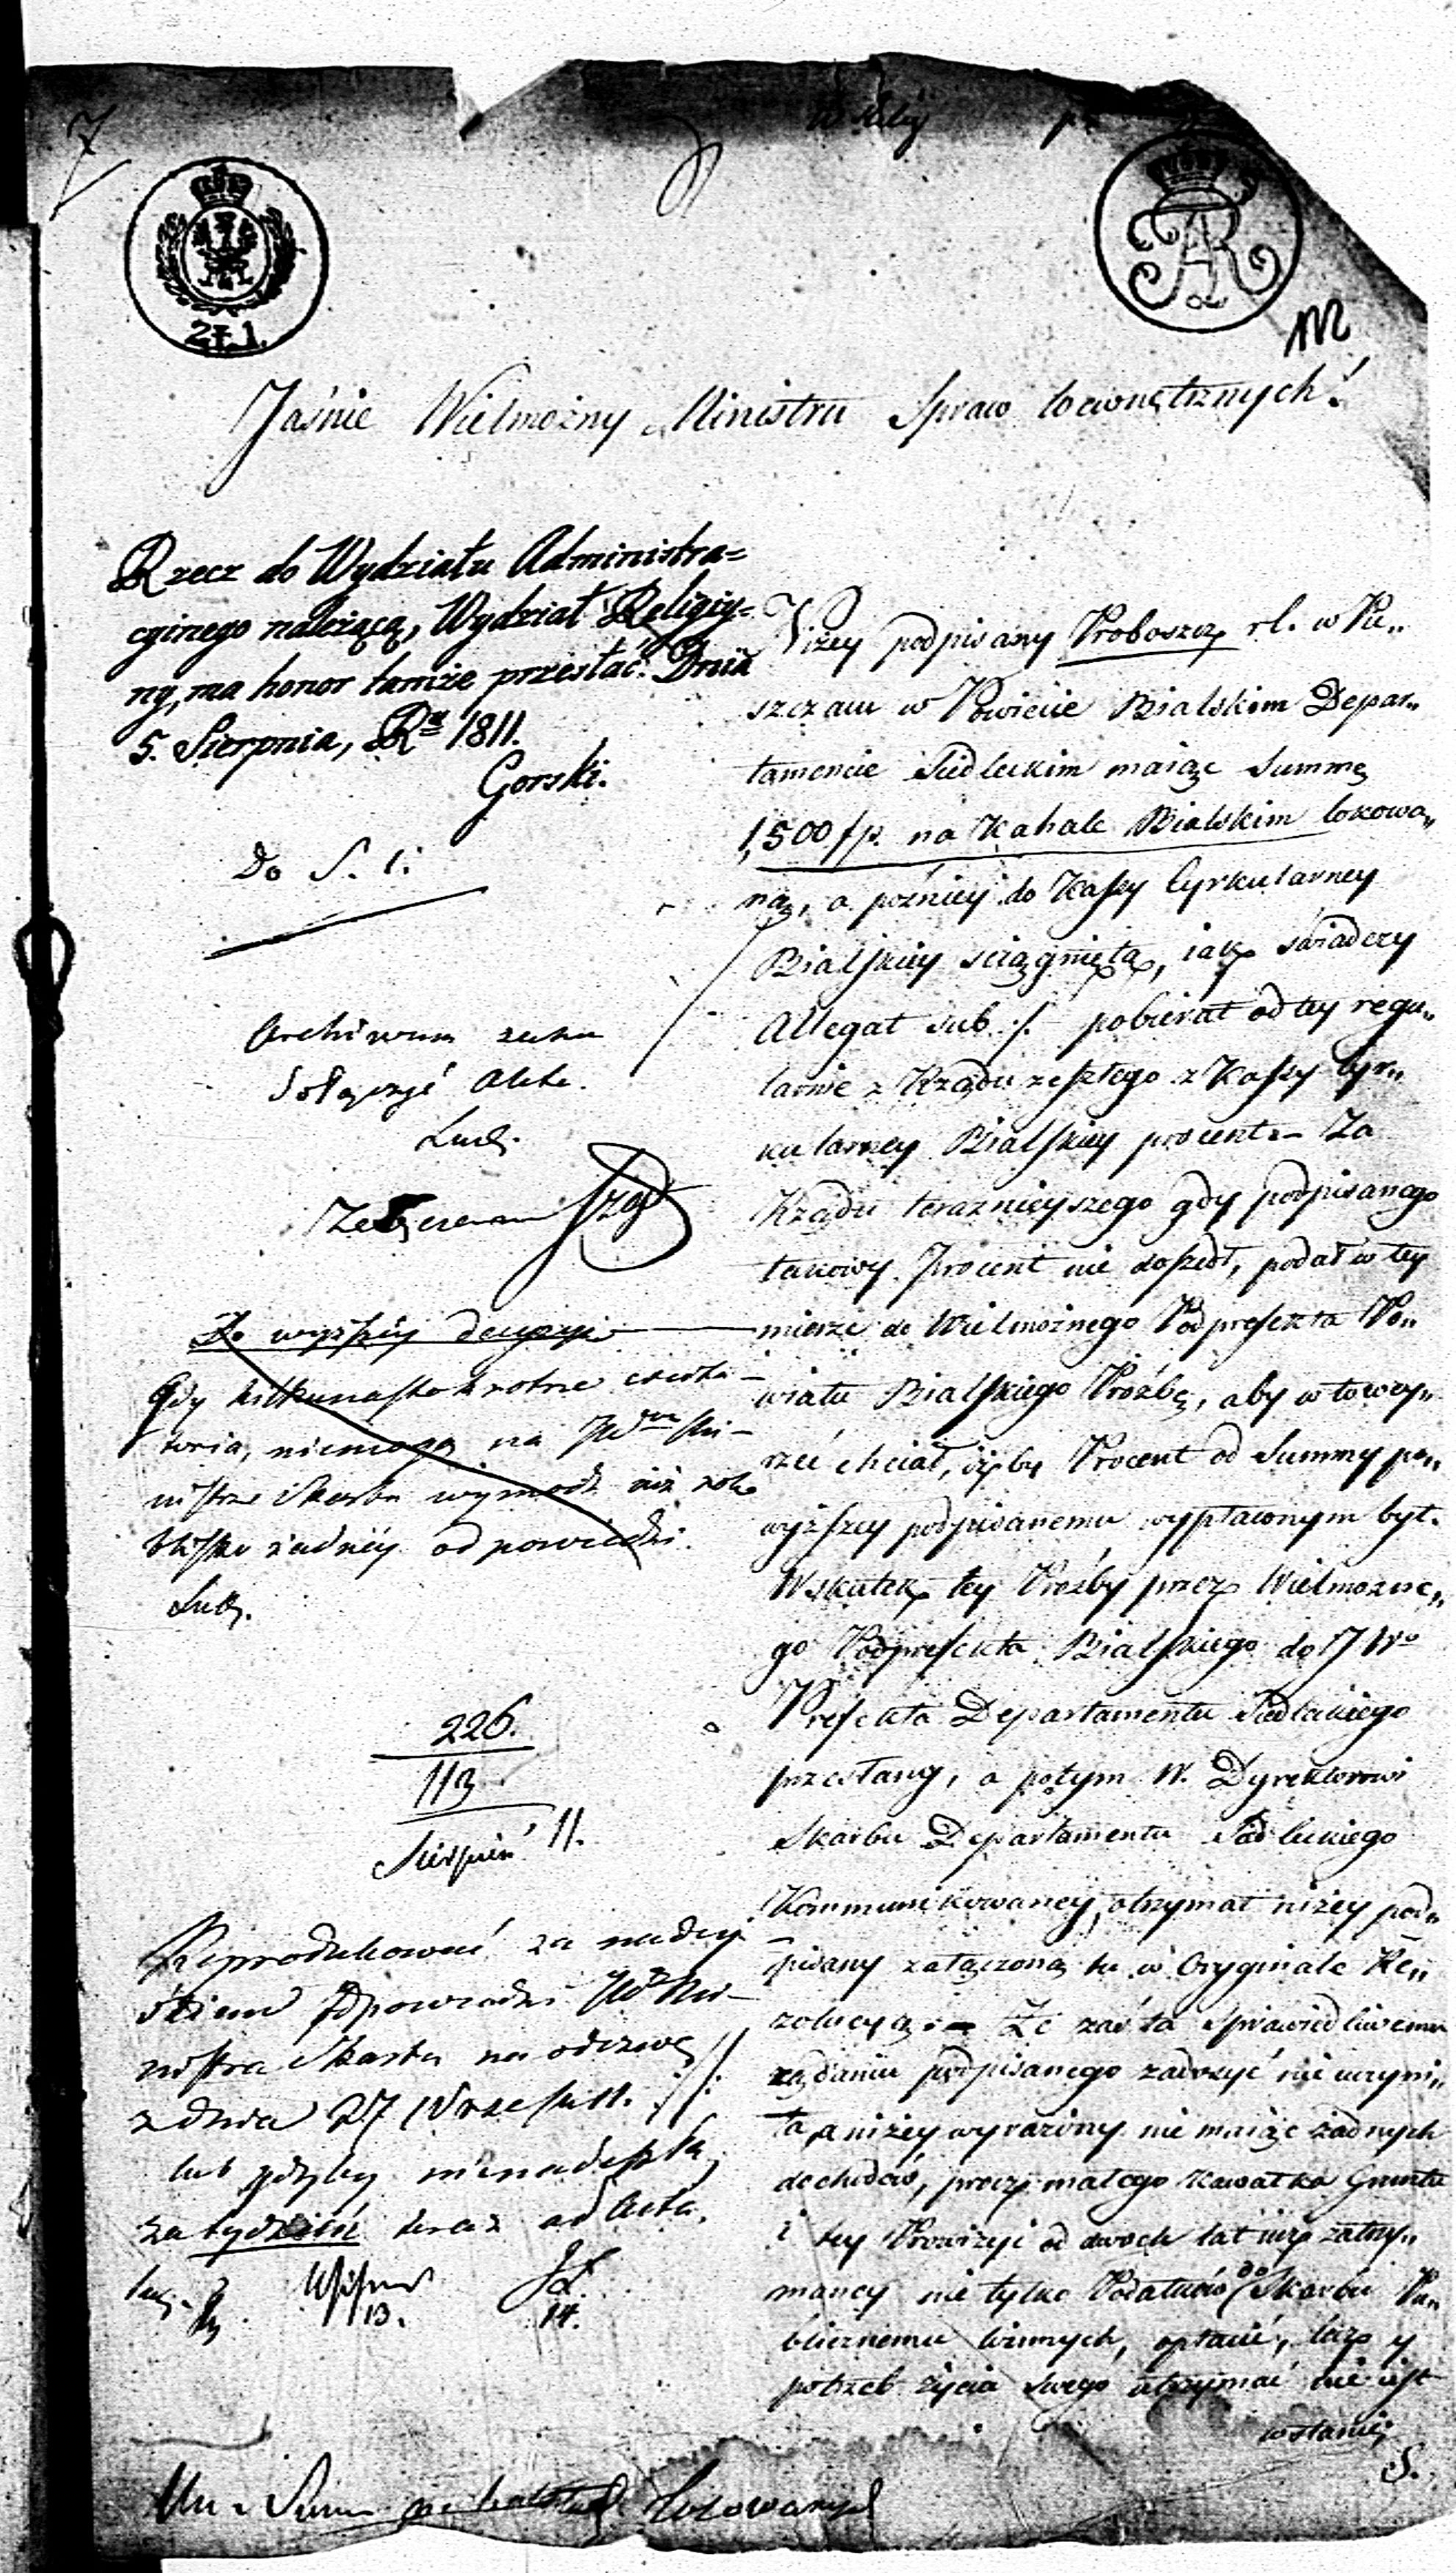 7
Zł. 1.
AR
Jaśnie Wielmożny Ministru Spraw wewnętrznych!
Rzecz do Wydziału Administra=
cyinego należącą, Wydział Religiy=
ny, ma honor tamże przesłać. Dnia
5. Sierpnia, Ru 1811.
Gorski.
Do S. 1.
Archiwum
dołączyć Akta.
Do wyższey decyzyi
Gdy kilkunastokrotne
toria, niemogą na JWm Mi-
nistrze Skarbu wymódz już rok
blisko żadnéy odpowiedzi.
226.
113
Sierpień 11.
Reprodukować za nadey
ściem odpowiedzi JWo Mi-
nistra Skarbu na odezwę
z dnia 27 Wrześn. :/:
lub gdyby nienadeszła
za tydzień teraz ad Acta.
13. 14.
Niżey podpisany Proboszcz rl. w Pu„
szczam w Powiecie Bialskim Depar„
tamencie Siedleckim maiąc Summę
1,500 fp. na Kahale Bialskim lokowa„
ną, a poźniey do Kassy Cyrkularney
Bialskiey ściągniętą, iak świadczy
Allegat sub ./. pobierał od tey regu„
larnie z Rządu zeszłego z Kassy Cyr„
kularney Bialskiey procent. – Za
Rządu teraznieyszego gdy podpisanego
takowy Procent nie doszedł, podał w tey
mierze do Wielmożnego Podprefekta Po„
wiatu Bialskiego Proźbę, aby w to wey„
rzeć chciał, iżby Procent od Summy po„
wyższey podpisanemu wypłaconym był.
W skutek tey Proźby przez Wielmożne„
go Podprefekta Bialskiego do JWo
Prefekta Departamentu Siedleckiego
przesłaney, a potym W. Dyrektorowi
Skarbu Departamentu Siedleckiego
Kommunikowaney, otrzymał niżey pod„
pisany załączoną tu w Oryginale Re„
zolucyą. – Że zaś ta sprawiedliwemu
żądaniu podpisanego zadosyć nie uczyni„
ła, a niżey wyrażony nie maiąc żadnych
dochodów, procz małego kawałka Gruntu
i tey Prowizyi od dwoch lat iuż zatrzy„
maney nie tylko Podatków do Skarbu Pu„
blicznemu winnych, opłacić, lecz y
potrzeb życia swego utrzymać nie iest
wstanie;
S.
lokowanych